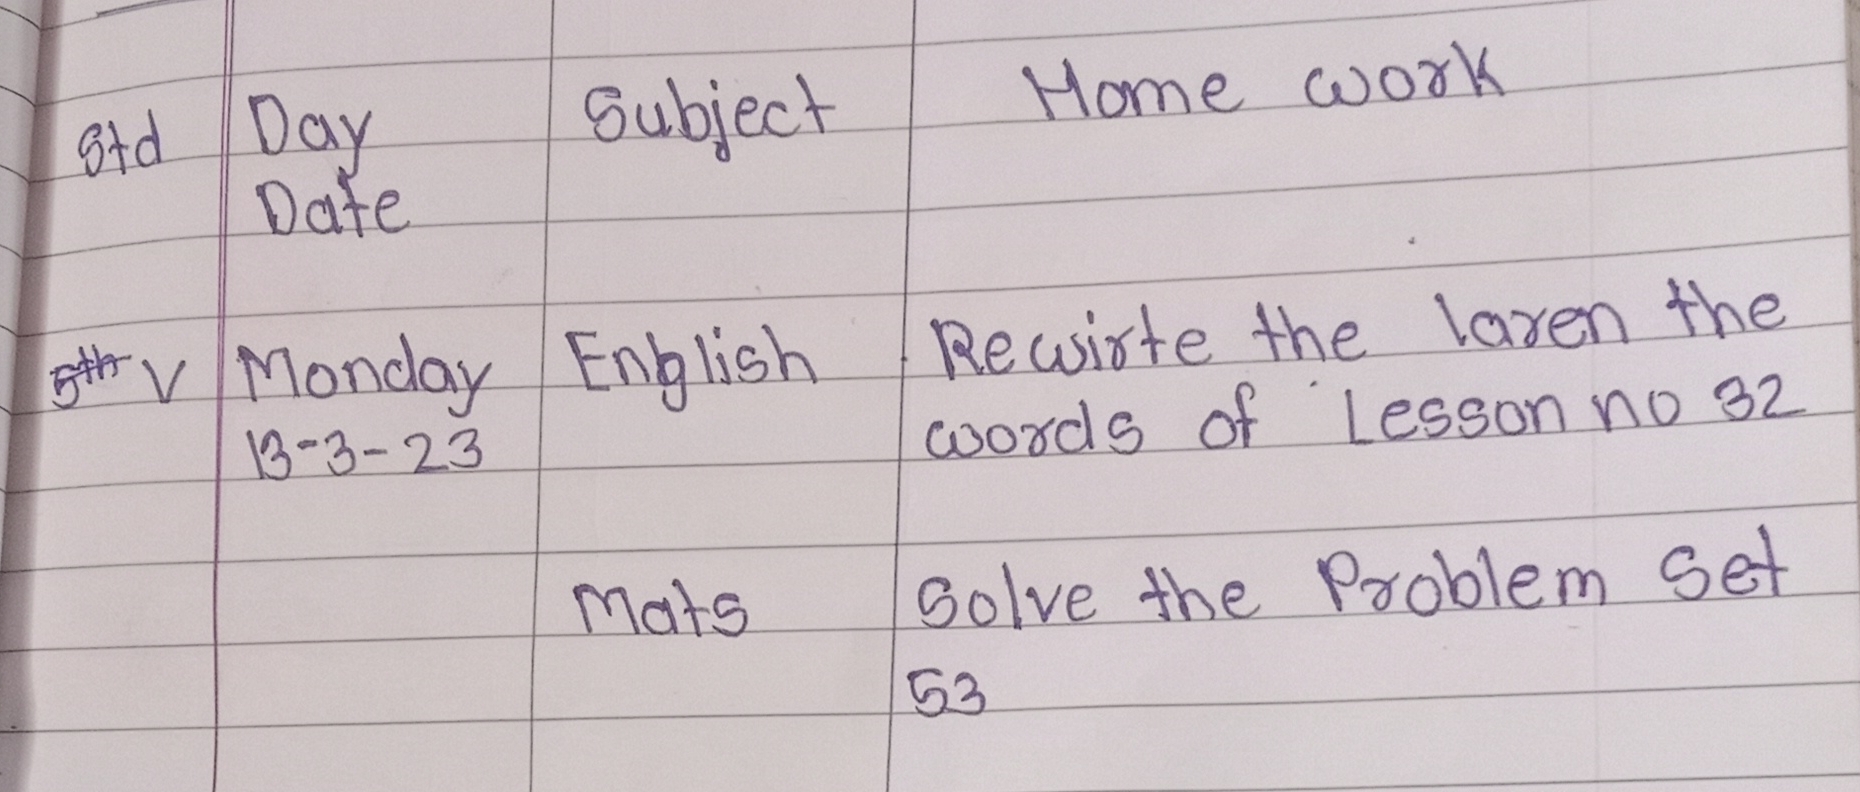 Std Day Subject Home work
Date
5th V Monday English Rewirte the laren the
13-3-23 words of Lesson no 32
Mats Solve the Problem Set
53